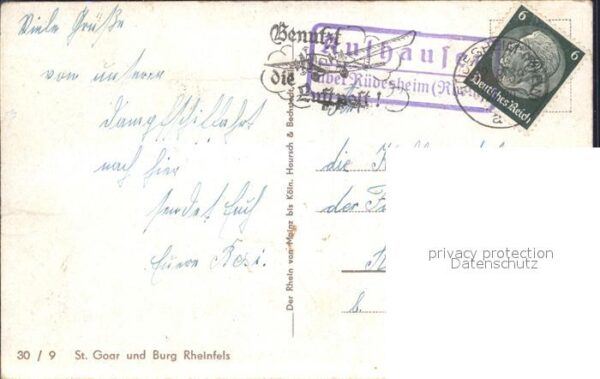 Viele Grüße
von unserer
Dampfschiffahrt
nach hier
sendet Euch
Eure Resi.
Benutzt
die
Luftpost!
Aulhausen
über Rüdesheim (Rhein
6
6
Deutsches Reich
Der Rhein von Mainz bis Köln. Hoursch & Bechstedt,
die
der
privacy protection
Datenschutz
b.
30 / 9 St. Goar und Burg Rheinfels